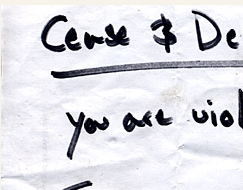 Cease $ De
you are viol